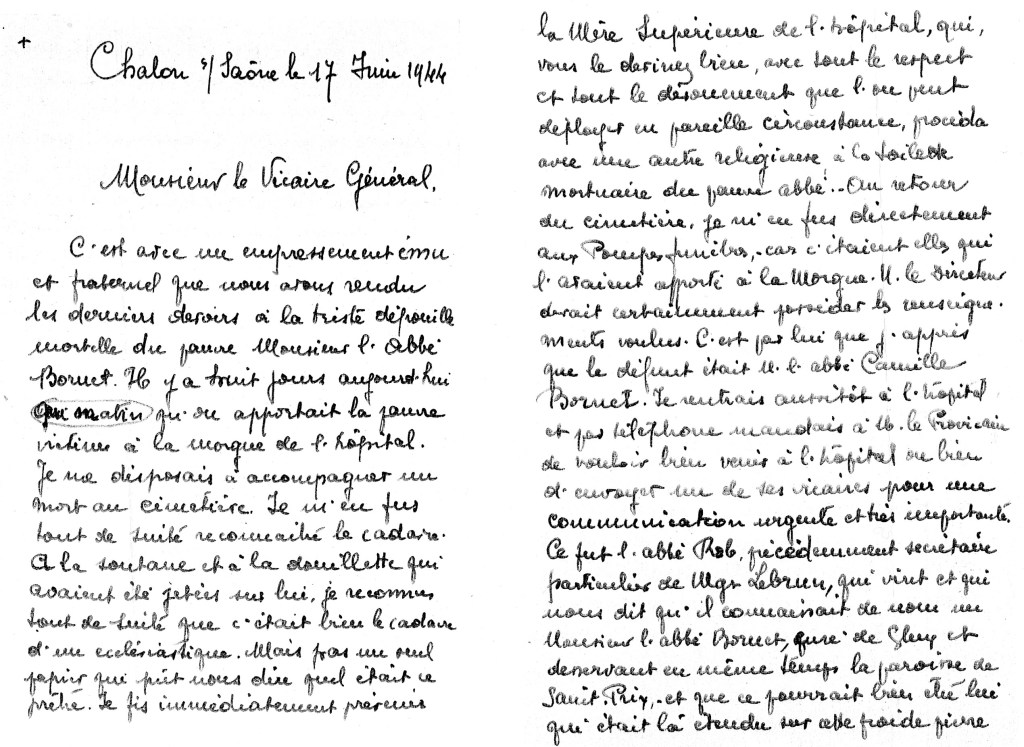 +
Chalon s/ Saône le 17 Juin 1944
Monsieur le Vicaire Général,
C'est avec un empressement ému
et fraternel que nous avons rendu
les derniers devoirs à la triste dépouille
mortelle du pauvre Monsieur l'Abbé
Bornet. Il y a huit jours aujourd'hui
qu'on apportait la pauvre
victime à la morgue de l'hôpital.
Je me disposais à accompagner un
mort au cimetière. Je m'en fus
tout de suite reconnaître le cadavre.
A la soutane et à la douillette qui
avaient été jetées sur lui, je reconnus
tout de suite que c'était bien le cadavre
d'un ecclésiastique. Mais pas un seul
papier qui pût nous dire quel était ce
prêtre. Je fis immédiatement prévenir
la Mère Supérieure de l'hôpital, qui,
vous le devinez bien, avec tout le respect
et tout le dévouement que l'on peut
déployer en pareille circonstance, procéda
avec une autre religieuse à la toilette
mortuaire du pauvre abbé.. Au retour
du cimetière, je m'en fus directement
aux Pompes funèbres,. car c'étaient elles qui
l'avaient apporté à la Morgue. M. le Directeur
devait certainement posséder les renseigne-
ments voulus. C'est par lui que j'appris
que le défunt était M. l'abbé Camille
Bornet. Je rentrais aussitôt à l'hôpital
et par téléphone mandais à M. le
de vouloir bien venir à l'hôpital ou bien
d'envoyer un de ses vicaires pour une
communication urgente et très importante.
Ce fut l'abbé Rob, précédemment secrétaire
particulier de Mgr Lebrun, qui vint et qui
nous dit qu'il connaissait de nom un
Monsieur l'abbé Bornet, curé de Glux et
desservant en même temps la paroisse de
Saint-Prix,. et que ce pourrait bien être lui
qui était là étendu sur cette froide pierre